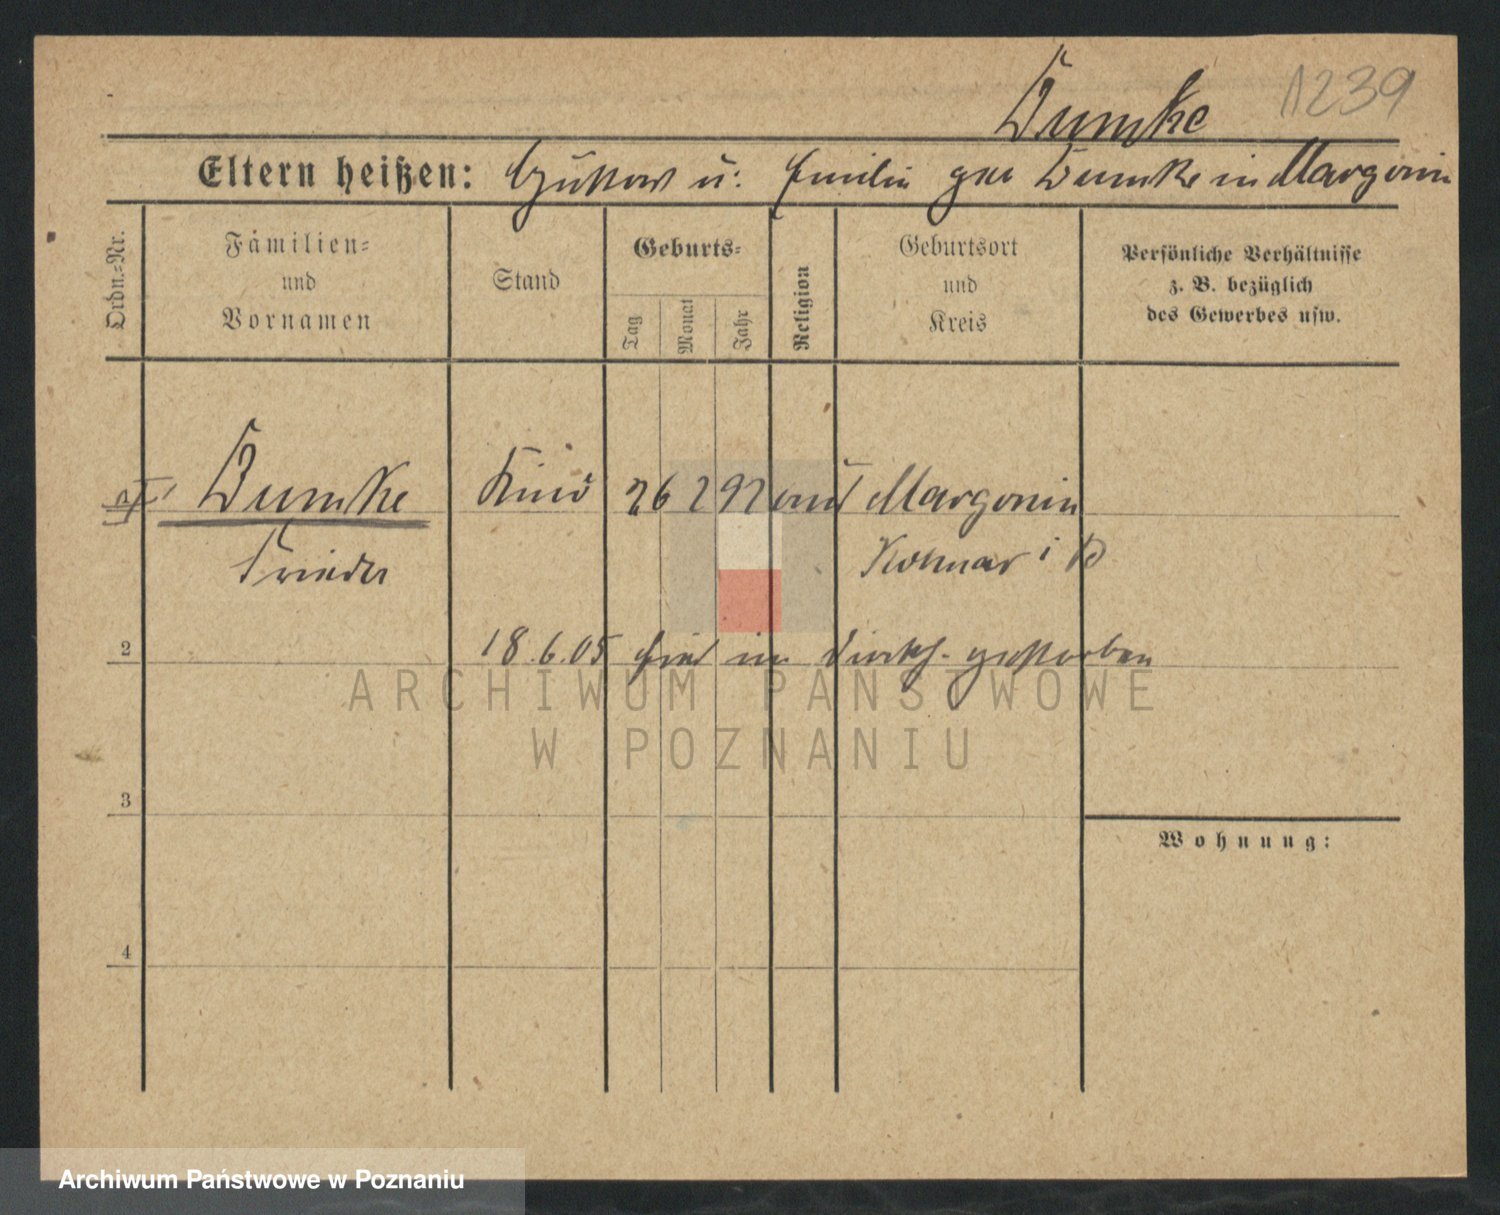 Dumke 1239
Eltern heißen: Gustav u. Emilie geb Dumke in Margonin
Ordn.=Nr.
Familien=
und
Vornamen
Stand
Geburts=
Tag
Monat
Jahr
Religion
Geburtsort
und
Kreis
Persönliche Verhältnisse
z. B. bezüglich
des Gewerbes usw.
Dumke Kind 26 2 92 Margonin
Frieda Kolmar i P
2
18.6.05 hier in gestorben
ARCHIWUM PAŃSTWOWE
W POZNANIU
3
Wohnung:
4
Archiwum Państwowe w Poznaniu